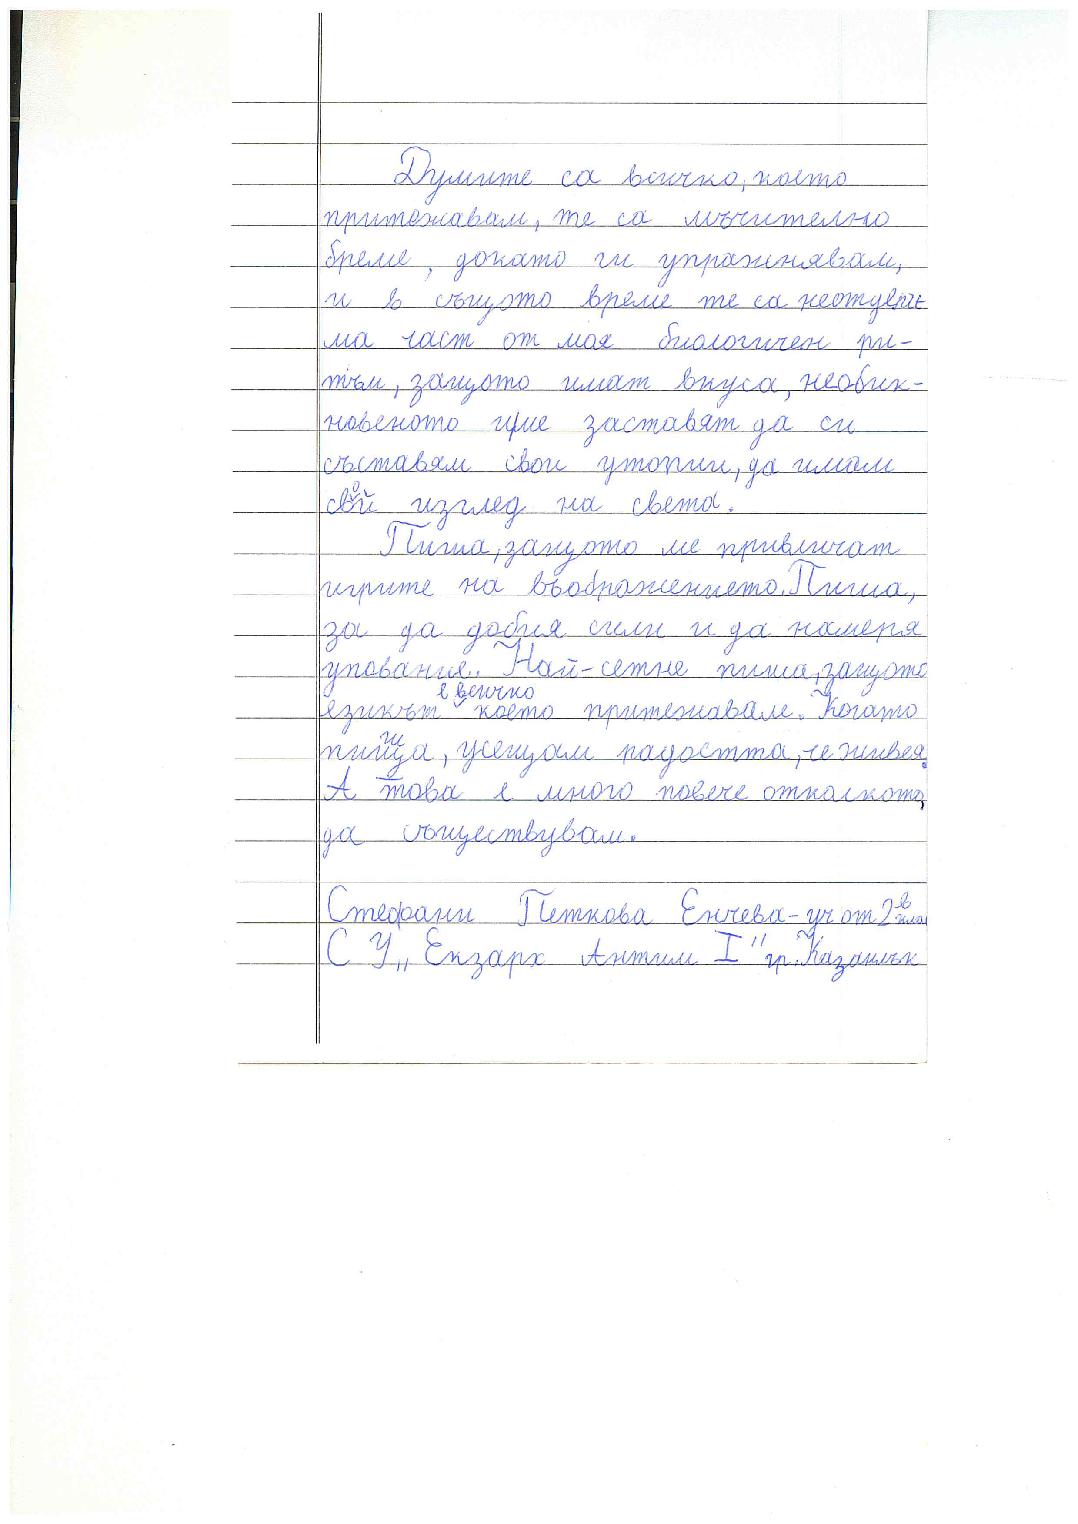 Думите са всичко, което
притежавам, те са мъчително
бреме, докато ги упражнявам,
и в същото време те са неотдели
ма част от моя биологичен ри-
тъм, защото имат вкуса, необик-
новеното и ме заставят да си
съставям свои утопии, да имам
свой изглед на света.
Пиша, защото ме привличат
игрите на въображението. Пиша,
за да добия сили и да намеря
упования. Най-сетне пиша, защото
езикът е всичко което притежаваме. Когато
пиша, усещам радостта, че живея.
А това е много повече отколкото,
да съществувам.
Стефани Петкова Енчева - уч от 2 в кла
СУ „Екзарх Антим I" гр. Казанлък